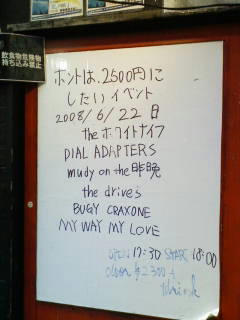 飲食物危険物
持ち込み禁止
ホントは、2500円に
したいイベント
2008/6/22 日
theホワイトナイフ
DIAL ADAPTERS
mudy on the 昨晩
the drive's
BUGY CRAXONE
MY WAY MY LOVE
OPEN 17:30 START 18:00
¥2300
1drink